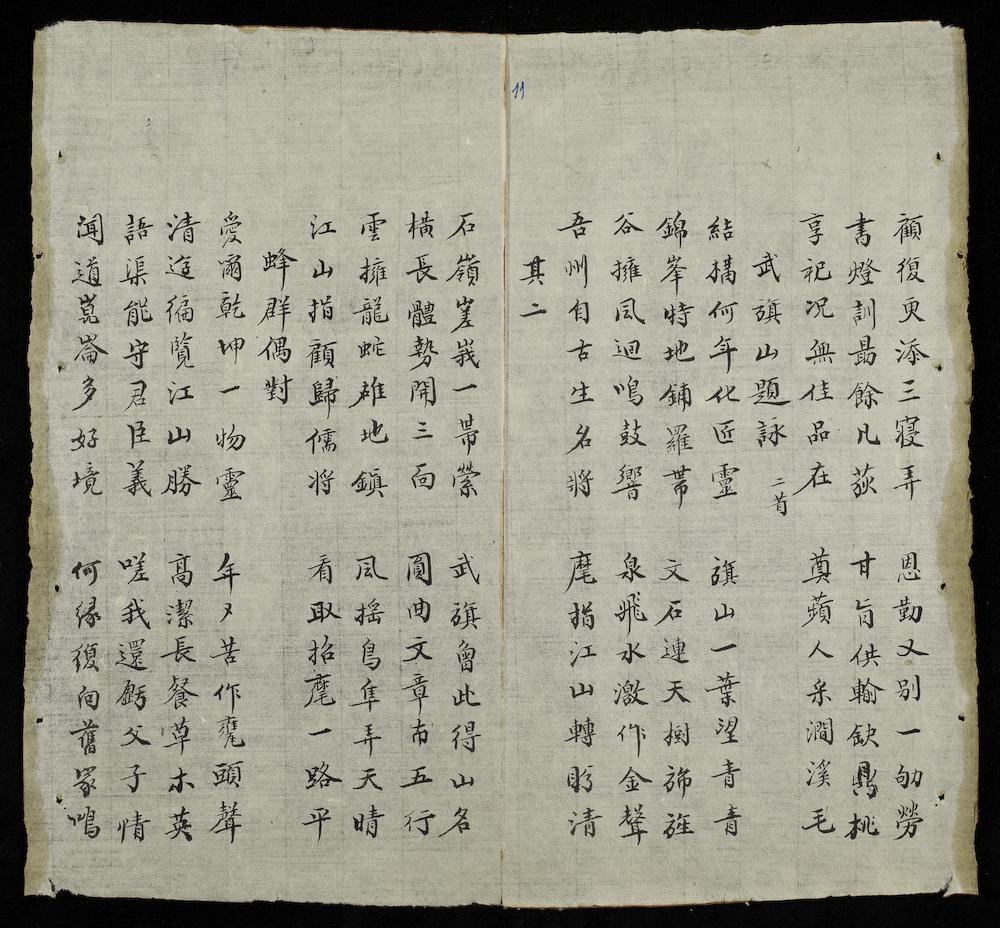 11
顧復更添三寝弄 恩勤又別一劬勞
書燈訓勗餘凡荻 甘旨供輸欽鼎桃
享祀况無佳品在 奠蘋人采澗溪毛
武旗山題詠 二首
結搆何年化匠靈 旗山一葉望青青
錦峯特地鋪羅帶 文石連天樹斾旌
谷擁風迴鳴鼓響 泉飛水激作金聲
吾州自古生名將 麾指江山轉盻清
其二
石嶺嵳峩一帶縈 武旗曾此得山名
橫長體勢開三面 圓曲文章市五行
雲擁龍蛇雄地鎮 風摇鳥隼弄天晴
江山指顧歸儒將 看取招麾一路平
蜂群偶對
愛爾乾坤一物靈 年〻苦作甕頭聲
清遊徧覽江山勝 高潔長餐草木英
語渠能守君臣義 嗟我還虧父子情
闻道崑崙多好境 何緣復向舊冢鳴